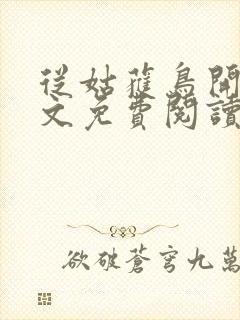 從姑獲鳥開
文免費閱讀
欲破蒼穹九萬